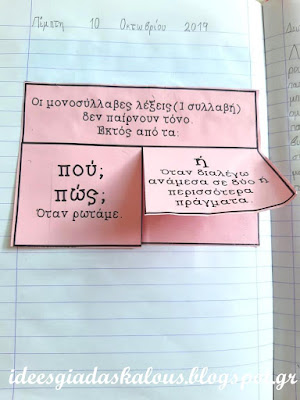 Πέμπτη 10 Οκτωβρίου 2019
Οι μονοσύλλαβες λέξεις(1 συλλαβή)
δεν παίρνουν τόνο.
Εκτός από τα:
πού;
πώς;
Όταν ρωτάμε.
ή
Όταν διαλέγω
ανάμεσα σε δύο ή
περισσότερα
πράγματα
ideesgiadaskalous.blogspot.gr